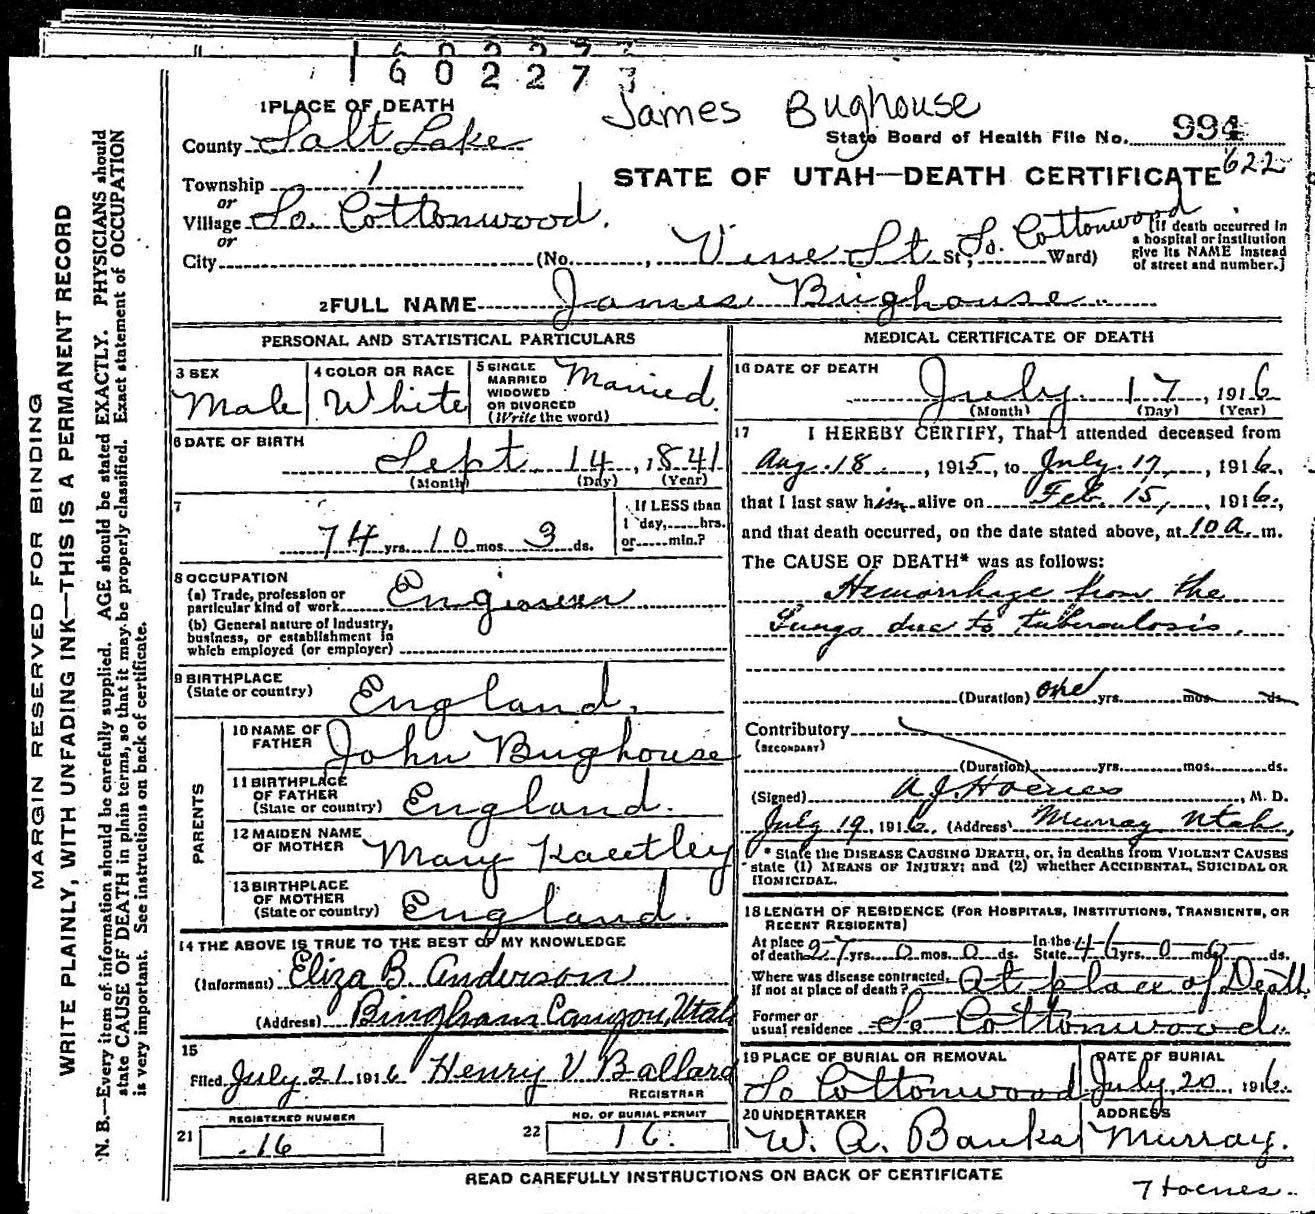 1 6 0 2 2 7 7
James Bughouse
1 PLACE OF DEATH
State Board of Health File No. 994
County Salt Lake
622
STATE OF UTAH—DEATH CERTIFICATE
Township
or
Village So. Cottonwood.
or
City (No. , Vine St. St; So. Cottonwood Ward)
[If death occurred in
a hospital or institution
give its NAME instead
of street and number.]
2 FULL NAME James Bughouse
PERSONAL AND STATISTICAL PARTICULARS
3 SEX
Male
4 COLOR OR RACE
White
5 SINGLE
MARRIED
WIDOWED
OR DIVORCED
(Write the word)
Married.
6 DATE OF BIRTH
Sept 14, 1841
(Month) (Day) (Year)
7
74 yrs. 10 mos. 3 ds.
If LESS than
1 day, hrs.
or min.?
8 OCCUPATION
(a) Trade, profession or
particular kind of work Engineer
(b) General nature of Industry,
business, or establishment in
which employed (or employer)
9 BIRTHPLACE
(State or country) England.
PARENTS
10 NAME OF
FATHER John Bughouse
11 BIRTHPLACE
OF FATHER
(State or country) England.
12 MAIDEN NAME
OF MOTHER Mary
13 BIRTHPLACE
OF MOTHER
(State or country) England.
14 THE ABOVE IS TRUE TO THE BEST OF MY KNOWLEDGE
(Informant) Eliza B. Anderson
(Address) Bingham Canyon, Utah
15
Filed July 21 1916 Henry V Ballard
REGISTRAR
REGISTERED NUMBER
21 16
NO. OF BURIAL PERMIT
22 16.
MEDICAL CERTIFICATE OF DEATH
16 DATE OF DEATH
July 17, 1916
(Month) (Day) (Year)
17 I HEREBY CERTIFY, That I attended deceased from
Aug. 18, 1915, to July 17, 1916,
that I last saw him alive on Feb. 15, 1916,
and that death occurred, on the date stated above, at 10 a. m.
The CAUSE OF DEATH* was as follows:
Hemorrhage from the
Lungs due to tuberculosis.
(Duration) one yrs. mos. ds.
Contributory
(SECONDARY)
(Duration) yrs. mos. ds.
(Signed) A J Hoenes, M. D.
July 19, 1916. (Address) Murray Utah,
* State the DISEASE CAUSING DEATH, or, in deaths from VIOLENT CAUSES
state (1) MEANS OF INJURY; and (2) whether ACCIDENTAL, SUICIDAL OR
HOMICIDAL.
18 LENGTH OF RESIDENCE (FOR HOSPITALS, INSTITUTIONS, TRANSIENTS, OR
RECENT RESIDENTS)
At place
of death 27 yrs. 0 mos. 0 ds. In the
State 46 yrs. 0 mos. 0 ds.
Where was disease contracted,
If not at place of death? At place of Death
Former or
usual residence So Cottonwood.
19 PLACE OF BURIAL OR REMOVAL
So Cottonwood
DATE OF BURIAL
July 20 1916.
20 UNDERTAKER
W. A. Banks
ADDRESS
Murray.
READ CAREFULLY INSTRUCTIONS ON BACK OF CERTIFICATE
Hoenes
MARGIN RESERVED FOR BINDING
WRITE PLAINLY, WITH UNFADING INK—THIS IS A PERMANENT RECORD
N. B.—Every item of information should be carefully supplied. AGE should be stated EXACTLY. PHYSICIANS should
state CAUSE OF DEATH in plain terms, so that it may be properly classified. Exact statement of OCCUPATION
is very important. See instructions on back of certificate.